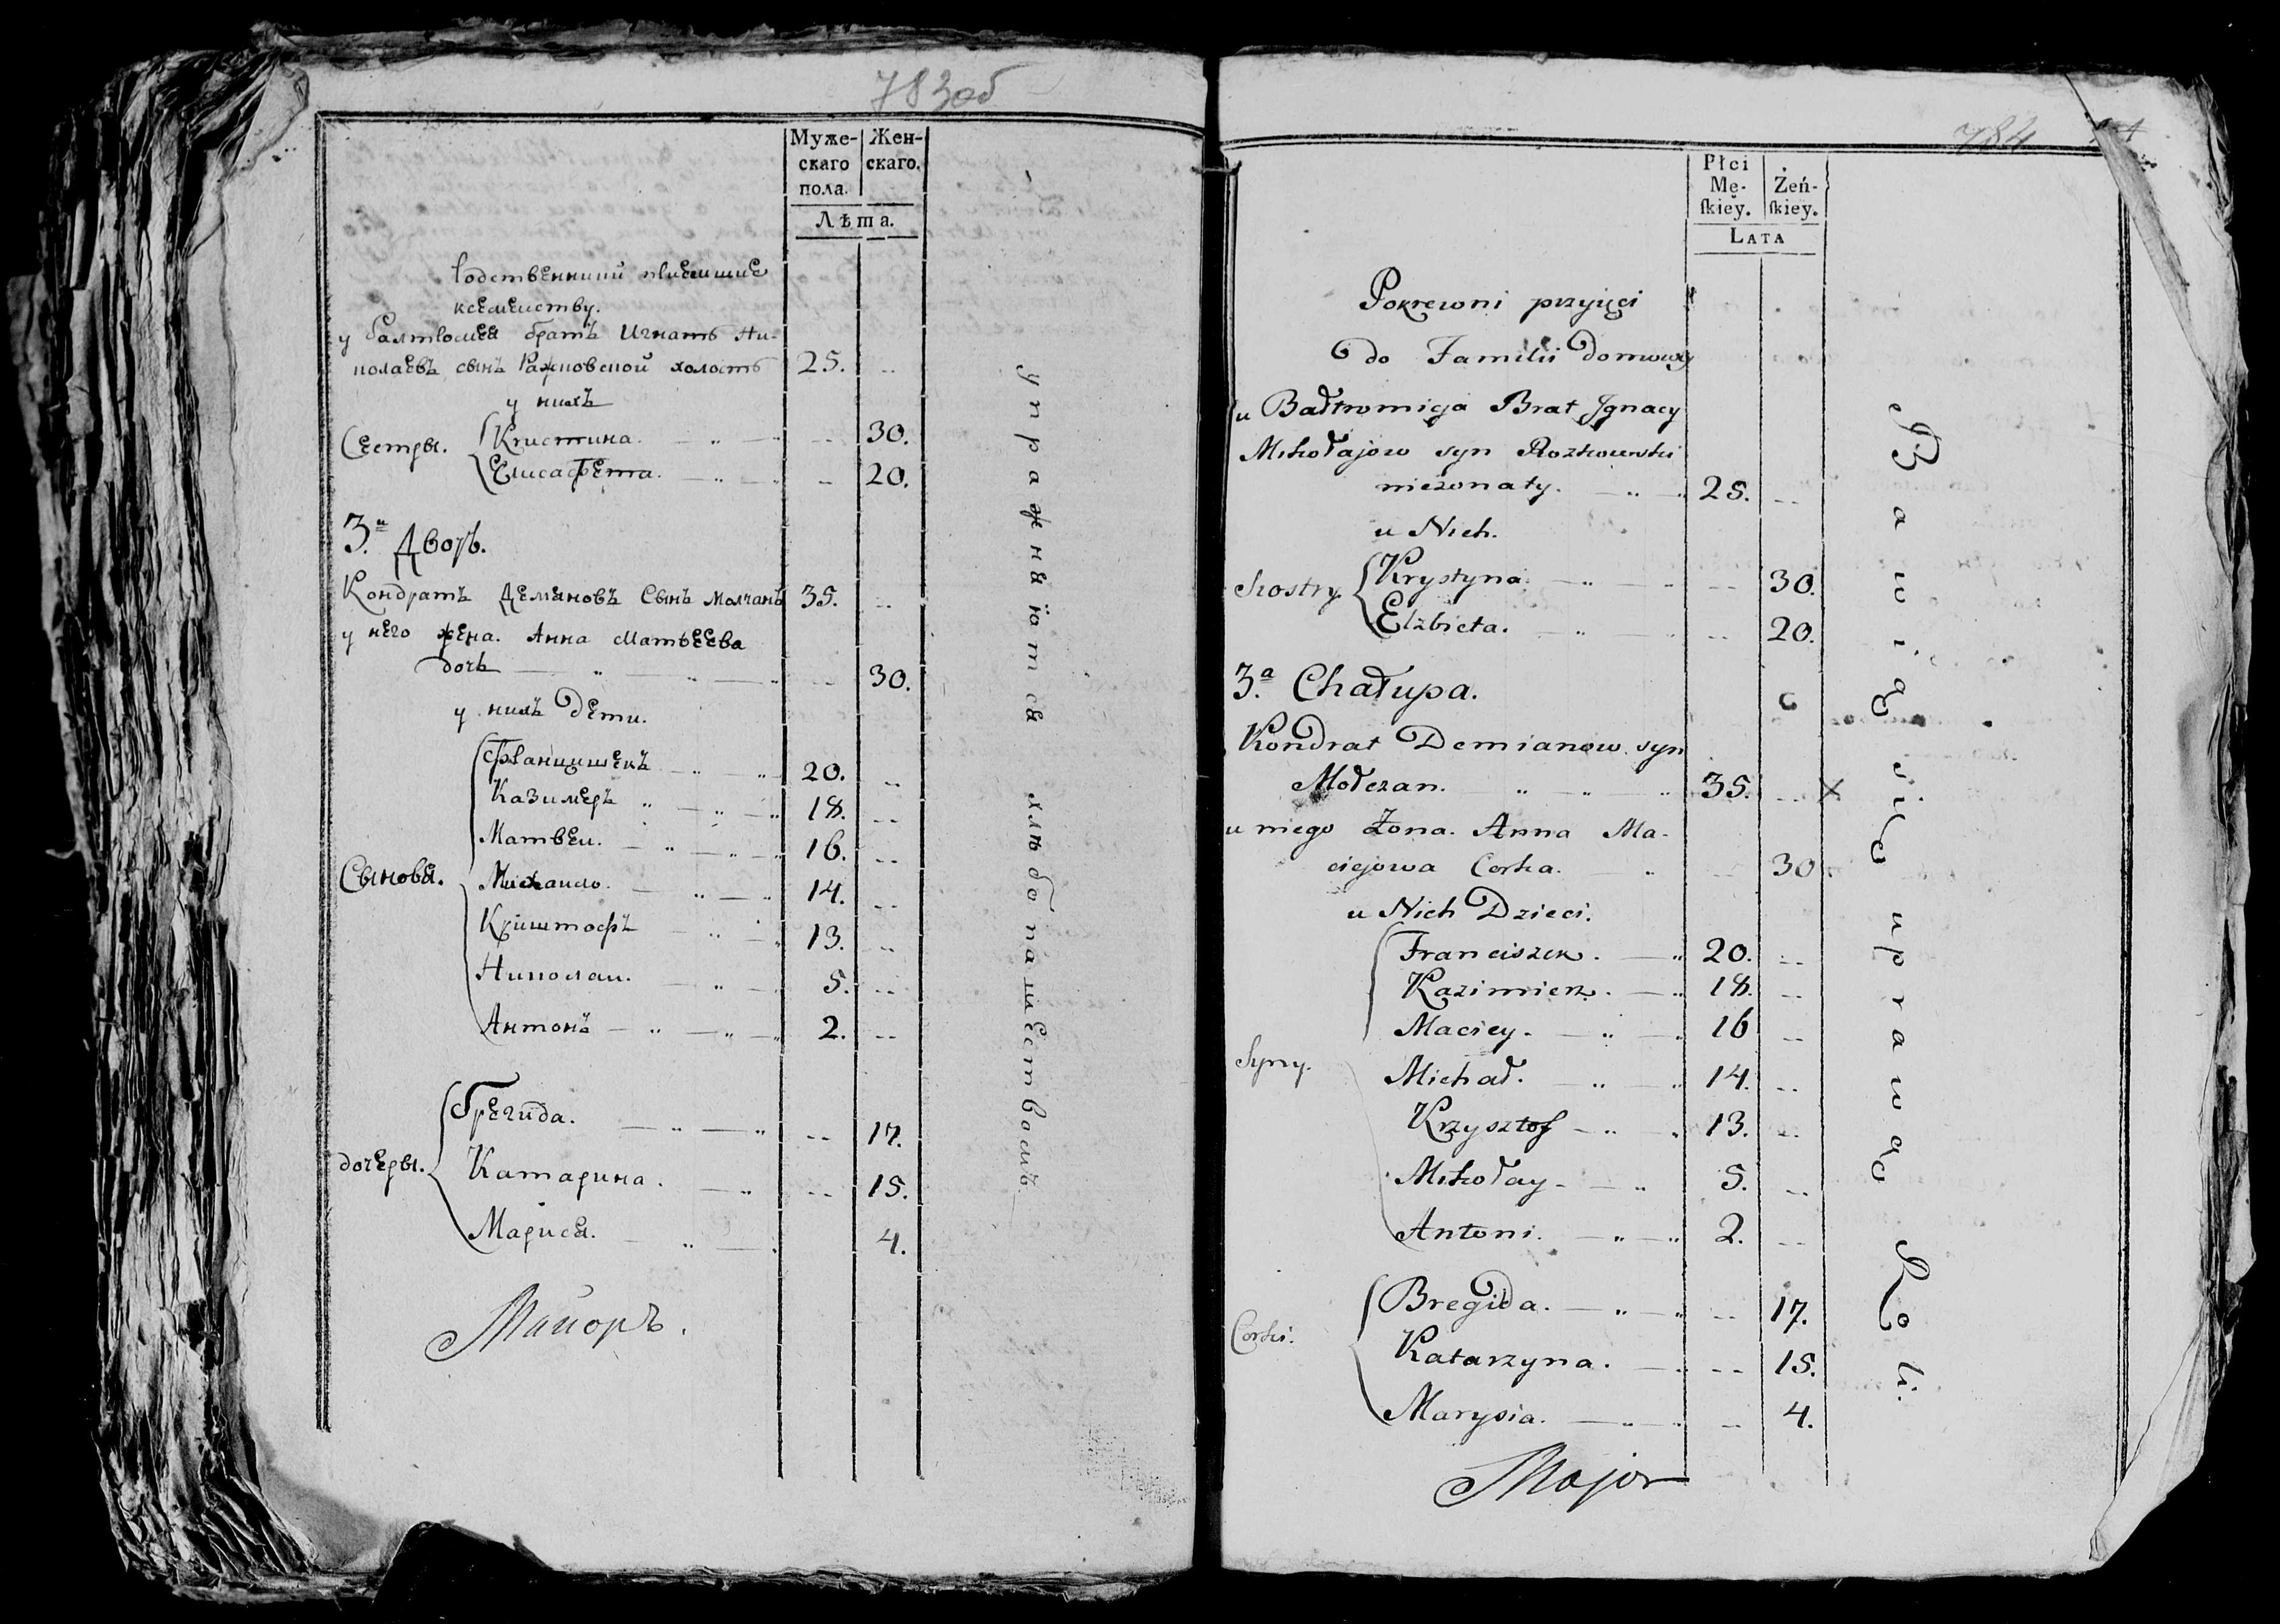 783об
Муже-
скаго
пола.
Жен-
скаго.
Лѣта.
Родственники
ксемеиству.
у Балтромея братъ Игнатъ Ни-
колаевъ сынъ Рожковской холостъ 25. ..
у нихъ
Сестры.
Кристина. — .. — .. 30.
Елисафета. — .. — .. 20.
3.й Дворъ.
Кондратъ Демяновъ Сынъ Молчанъ 35. ..
у него жена. Анна Матвеева
дочь — .. — .. — .. 30.
у нихъ Дети.
Сыновя.
Францишекъ — .. — .. 20. ..
Казимеръ .. — .. — .. 18. ..
Матвеи. — .. — .. — .. 16. ..
Михаило. — .. — .. 14. ..
Криштофъ — .. — . 13. ..
Николаи. — .. — .. 5. ..
Антонъ — .. — .. — .. 2. ..
дочеры.
Брегида. — .. — .. .. 17.
Катарина. — .. .. 15.
Марися. — .. — . 4.
Маиоръ.
упражняются хлѣбопашествомъ
784
Płci
Mę-
ſkiey.
Żeń-
ſkiey.
Lata
Pokrewni przyięci
do Familii Domowey
u Bałtromieja Brat Jgnacy
Mikołajow syn Rozkowski
nieżonaty. — .. — .. 25. ..
u Nich.
Siostry
Krystyna. — .. — .. .. 30.
Elżbieta. — .. — .. .. 20.
3.a Chałupa.
Kondrat Demianow syn
Mołczan. — .. — .. — .. 35. .. X
u niego Żona. Anna Ma-
ciejowa Corka. — .. .. 30
u Nich Dzieci.
Syny.
Franciszek. — .. 20. ..
Kazimierz. — .. 18. ..
Maciey. — .. — .. 16 ..
Michał. — .. — .. 14. ..
Krzysztof — .. — .. 13. ..
Mikołay — .. — .. 5. ..
Antoni. — .. — .. 2. ..
Corki.
Bregida. — .. — .. .. 17.
Katarzyna. — .. .. 15.
Marysia. — .. — .. .. 4.
Major
Bawią się uprawą Roli.